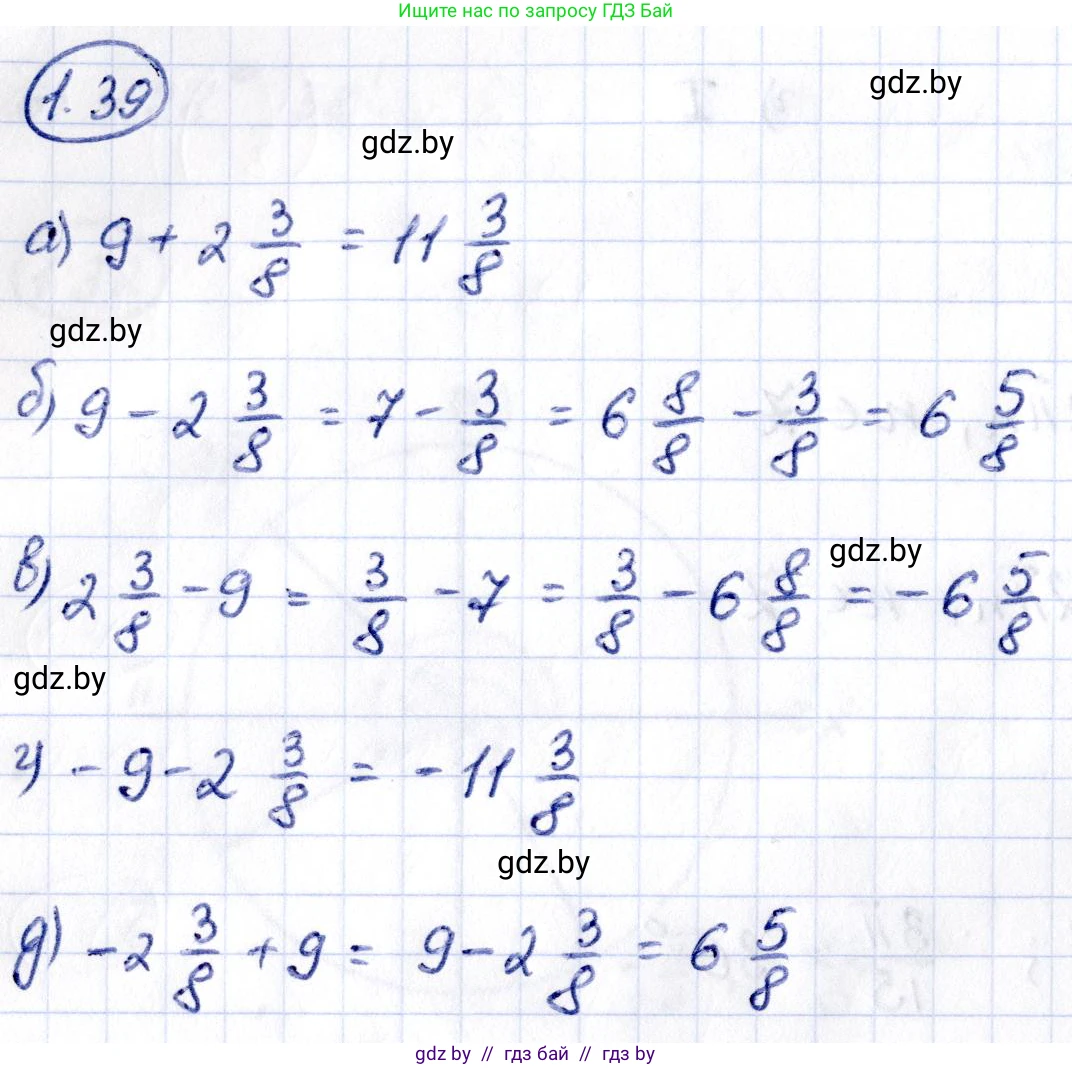 Ищите нас по запросу ГДЗ Бай
1.39
gdz.by
gdz.by
а) 9 + 2 3/8 = 11 3/8
gdz.by
б) 9 - 2 3/8 = 7 - 3/8 = 6 8/8 - 3/8 = 6 5/8
gdz.by
в) 2 3/8 - 9 = 3/8 - 7 = 3/8 - 6 8/8 = - 6 5/8
gdz.by
г) - 9 - 2 3/8 = - 11 3/8
gdz.by
д) - 2 3/8 + 9 = 9 - 2 3/8 = 6 5/8
gdz by // гдз бай // гдз by